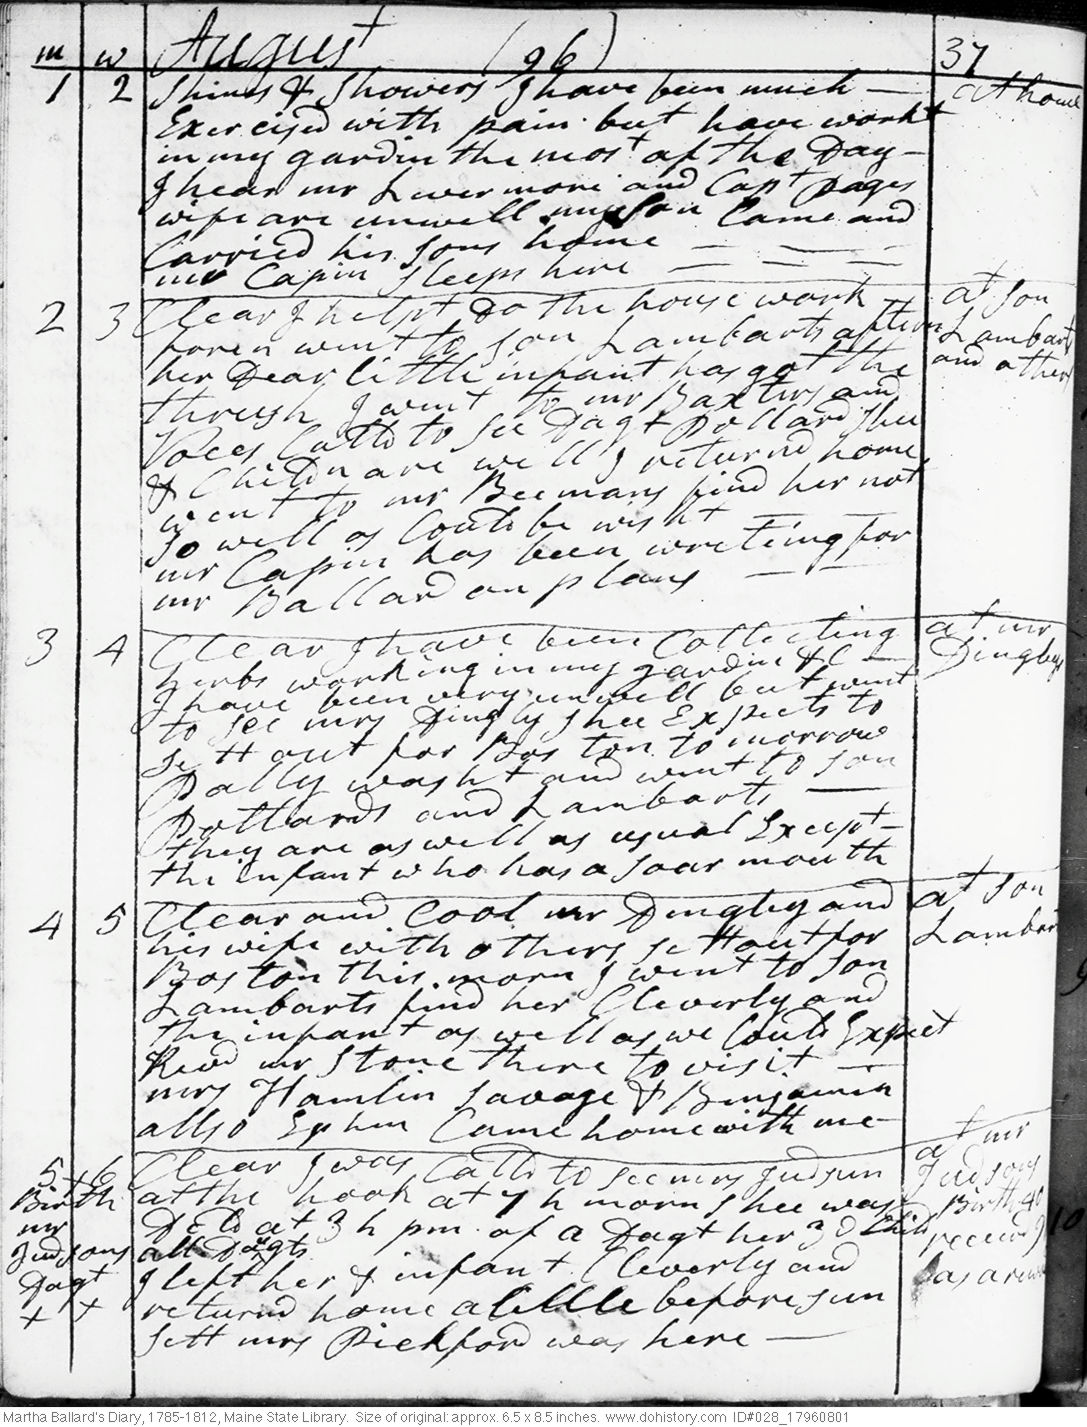 m w August (96) 37
1 2 Shins & Showers I have been much — at home
Exercised with pain but have workt
in my gardin the most of the Day —
I hear mr Livermore and Capt Pages
wife are unwell my Son Came and
Carried his Sons home — — —
mr Capin Sleeps here — — —
2 3 Clear I helpt Do the house work at Son
foren went to Son Lambarts aftern Lambart
her Dear little infant has got the and others
thrush I went to mr Baxters and
Voces Calld to See Dagt Pollard Shee
& Childn are well I returnd home
went to mr Beemans find her not
So well as Could be wisht
mr Capin has been wreting for
mr Ballard on plans — —
3 4 Clear I have been Collecting at mr
herbs working in my gardin &C — Dingleys
I have been very unwell but went
to See mrs Dingly Shee Expects to
Sett out for Boston tomorrow
Dally washt and went to Son
Pollards and Lambarts —
they are as well as usual Except —
the infant who has a Soar mouth
4 5 Clear and Cool mr Dingley and at Son
his wife with others Sett out for Lambart
Boston this morn I went to Son
Lambarts find her Cleverly and
the infant as well as we Could Expect
Revd mr Stone there to visit —
mrs Hamlin Savage & Benjamin
allso Ephm Came home with me —
5 6 Clear I was Calld to See mrs Judsun at mr
Birth at the hook at 7 h morn Shee was Judsons
mr DeLd at 3 h pm of a Dagt her 3d Child Birth 40
Judsons all Dagts receivd 9/
Dagt I left her & infant Cleverly and as a reward
+ + returnd home a little before Sun
Sett mrs Pickford was here —
10
Martha Ballard's Diary, 1785-1812, Maine State Library. Size of original: approx. 6.5 x 8.5 inches. www.dohistory.com ID#028_17960801